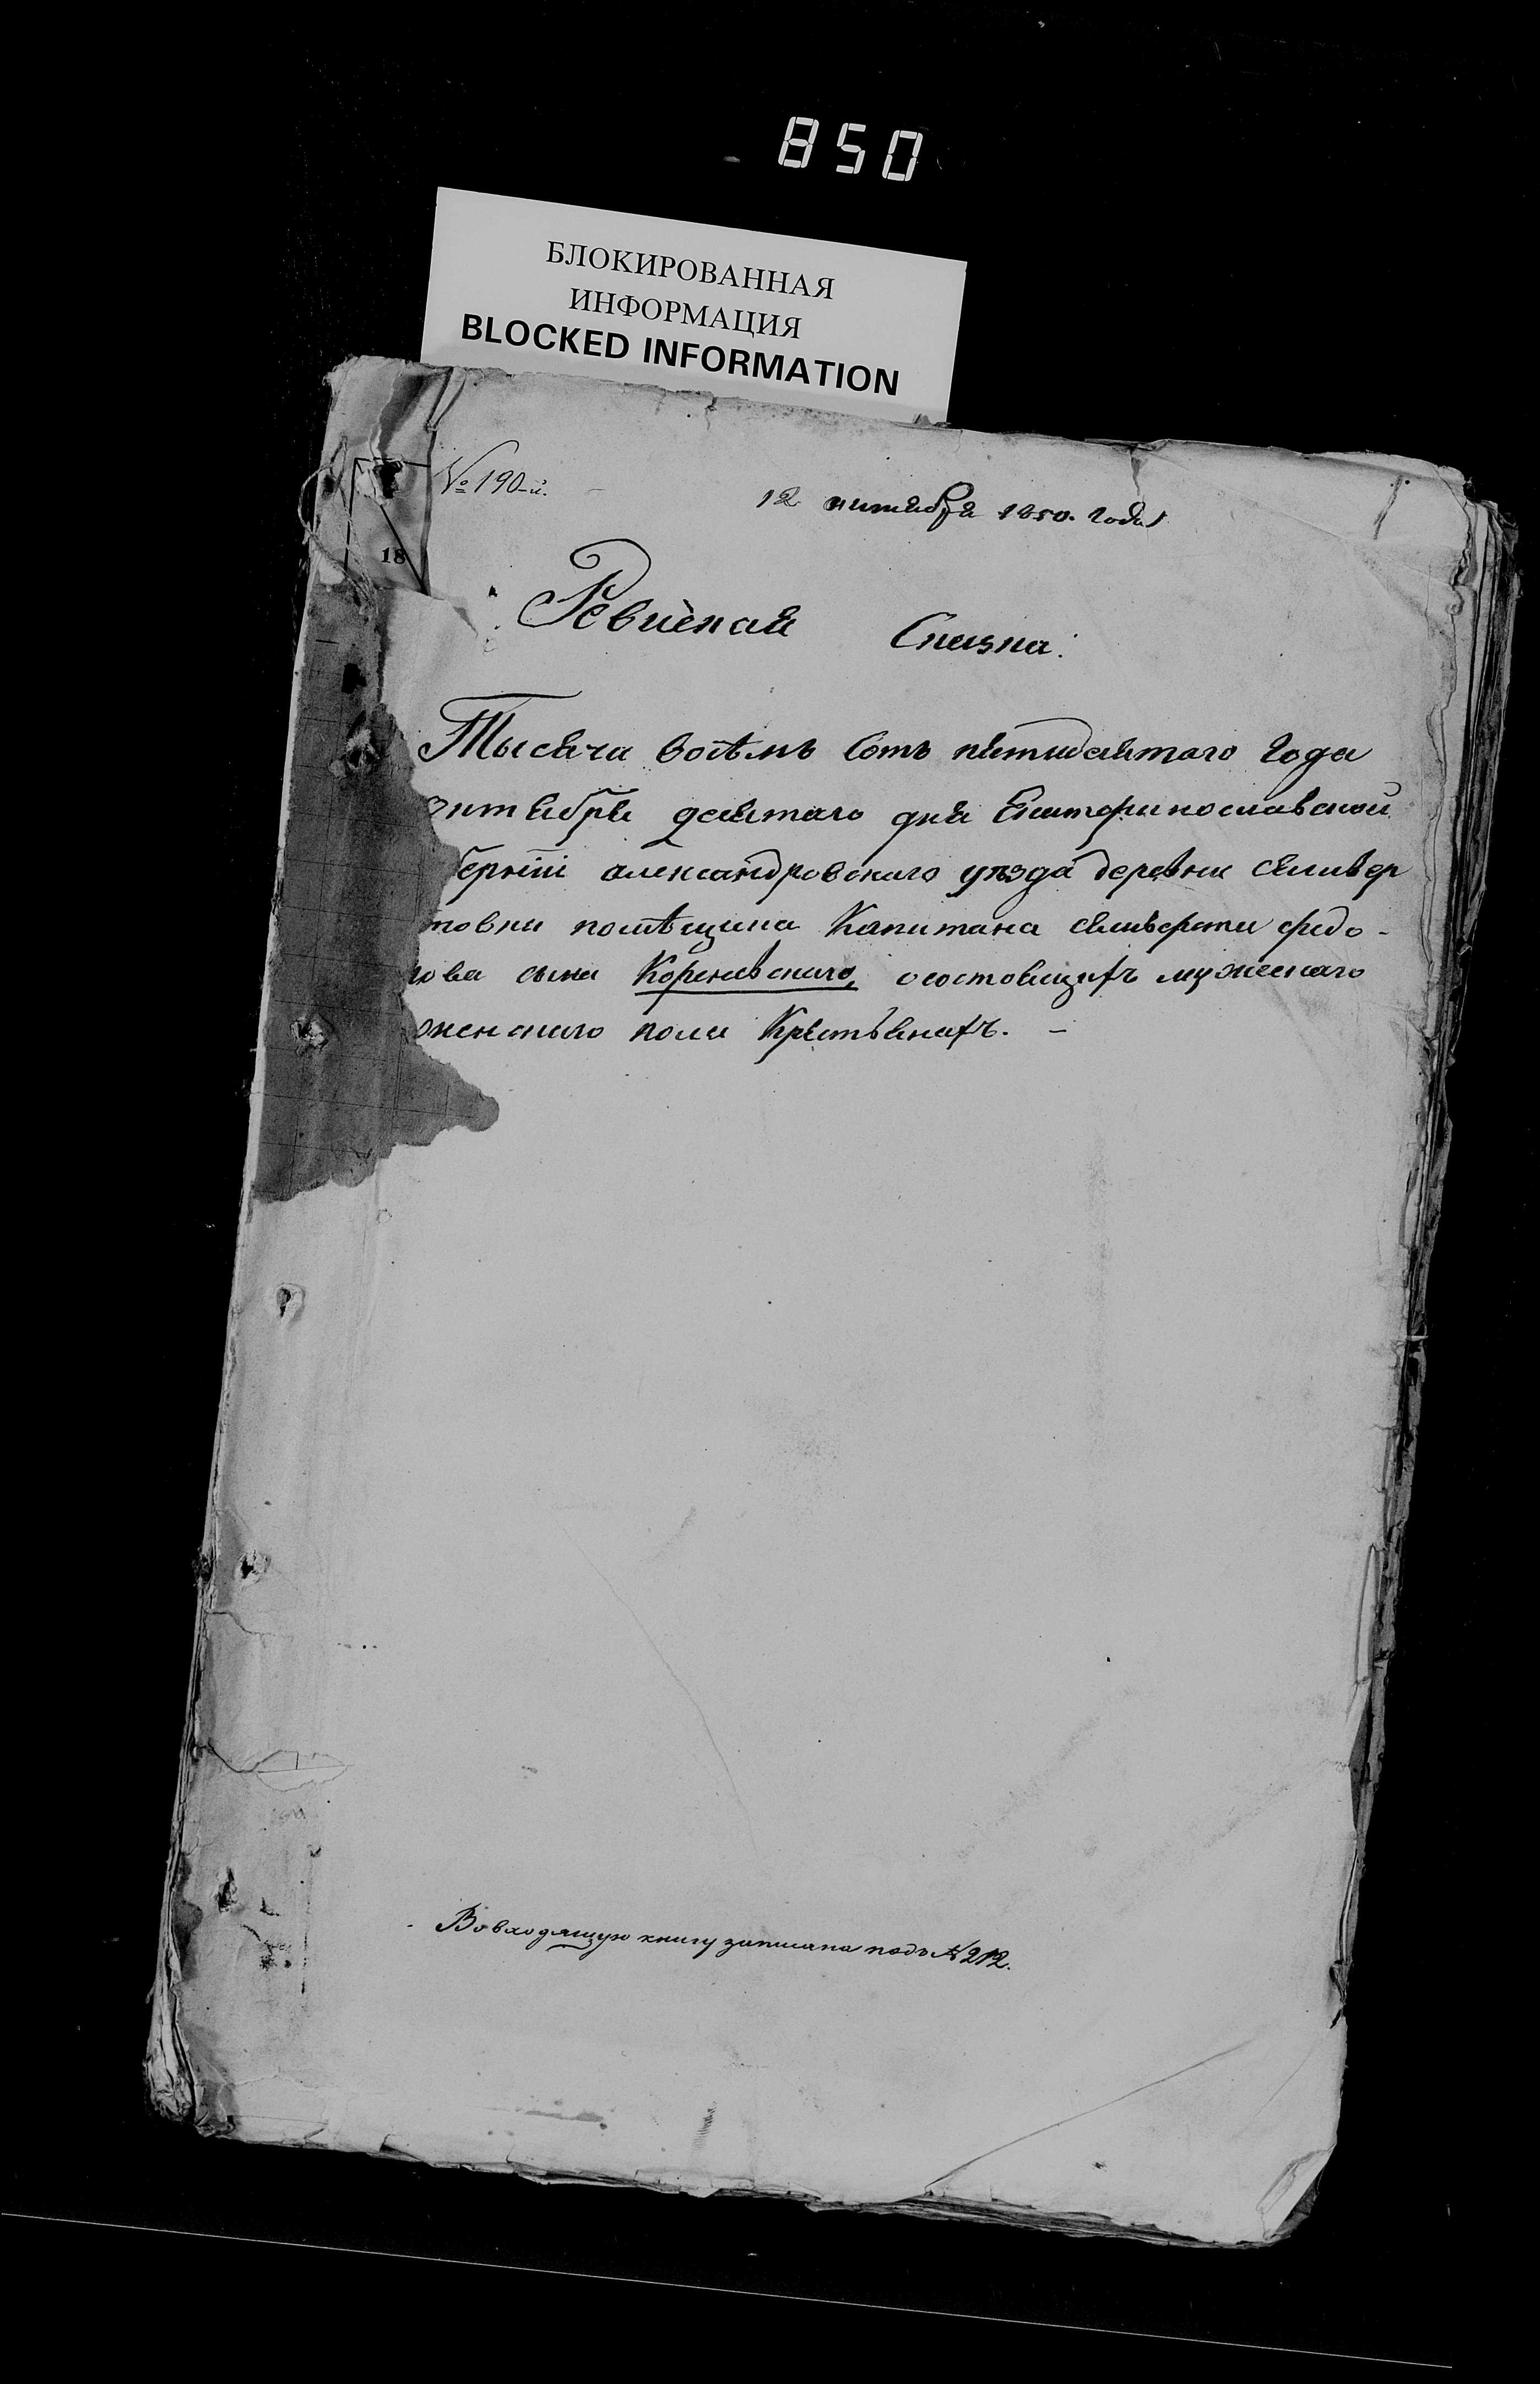 850
БЛОКИРОВАННАЯ
ИНФОРМАЦИЯ
BLOCKED INFORMATION
№ 190-й.
12 октября 1850. года
18
Ревиская Сказка.
Тысяча восѣмь сотъ пятидесятаго года
октября десятаго дня Екатеринославской
берніи александровскаго уѣзда деревни селивер
товки помѣщика Капитана селиверста федо-
рова сына Кореневскаго, осостоящихъ мужескаго
женскаго пола Крестьянахъ. –
Во входящую книгу записана подъ № 212.